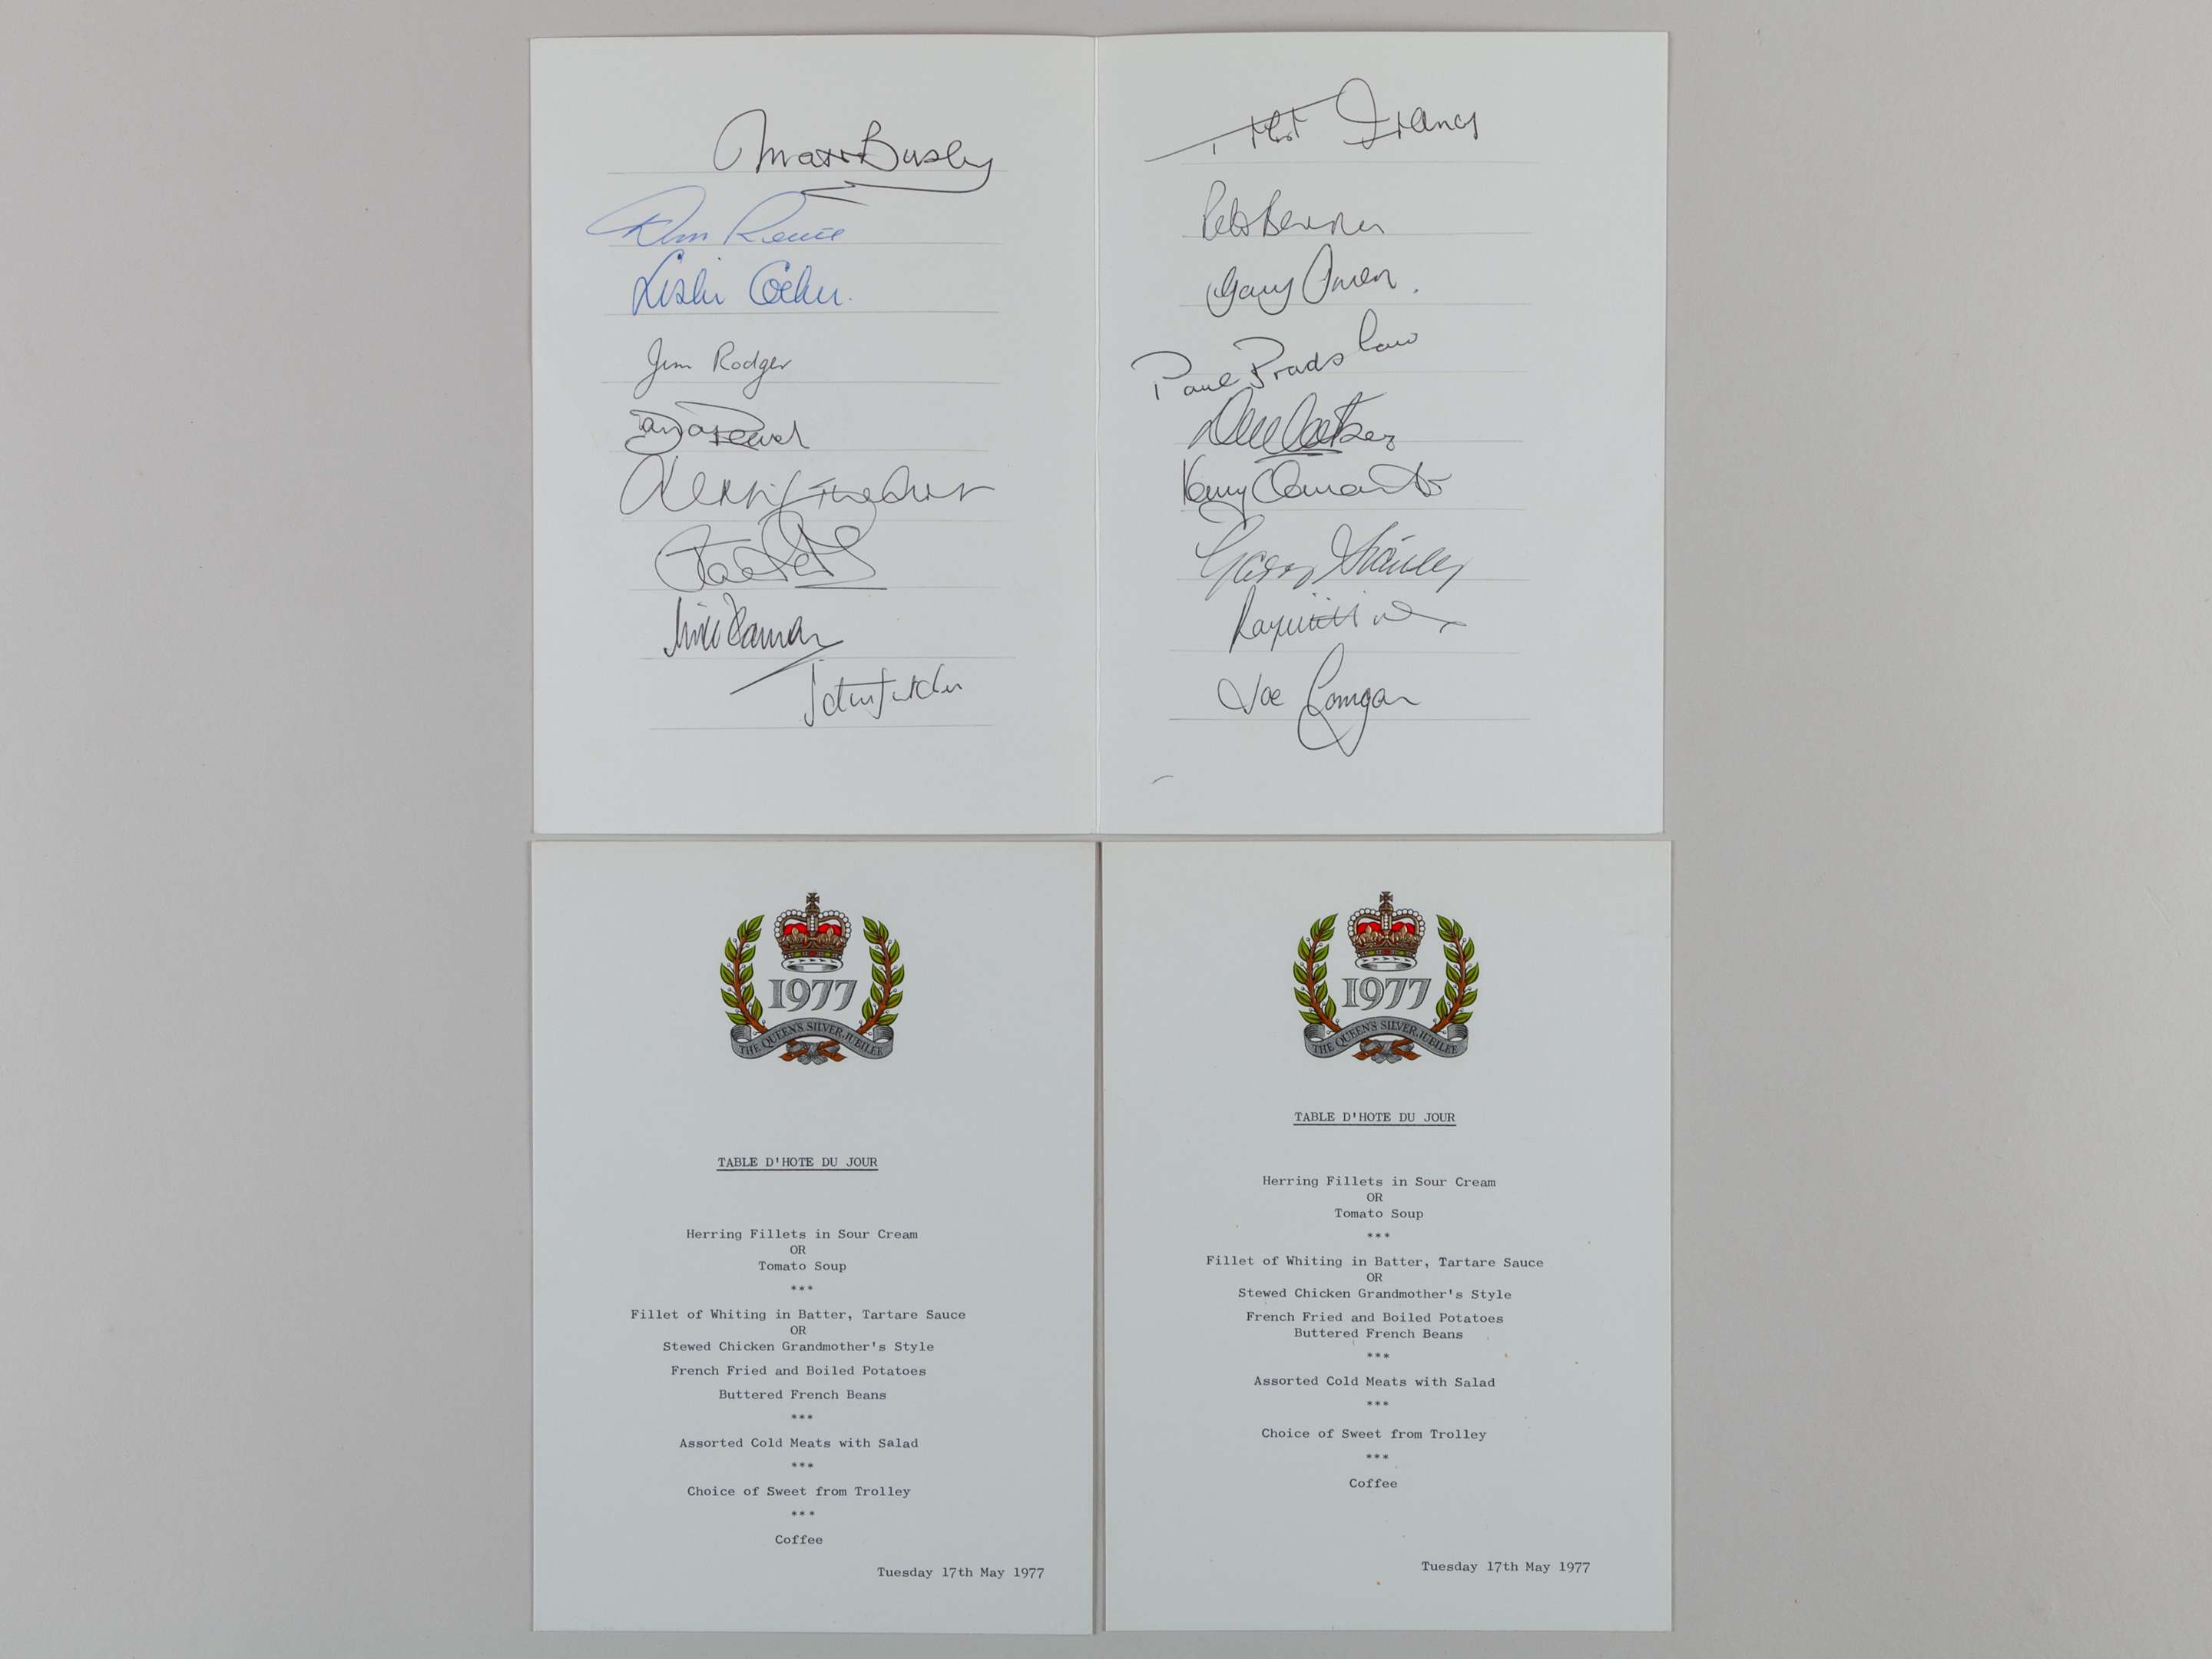 Matt Busby
Don Revie
Leslie Cocker.
Jim Rodger
Francis
Peter
Gary Owen.
Paul Bradshaw
Kenny Clements
Garry Stanley
Joe Corrigan
1977
THE QUEEN'S SILVER JUBILEE
TABLE D'HOTE DU JOUR
Herring Fillets in Sour Cream
OR
Tomato Soup
***
Fillet of Whiting in Batter, Tartare Sauce
OR
Stewed Chicken Grandmother's Style
French Fried and Boiled Potatoes
Buttered French Beans
***
Assorted Cold Meats with Salad
***
Choice of Sweet from Trolley
***
Coffee
Tuesday 17th May 1977
1977
THE QUEEN'S SILVER JUBILEE
TABLE D'HOTE DU JOUR
Herring Fillets in Sour Cream
OR
Tomato Soup
***
Fillet of Whiting in Batter, Tartare Sauce
OR
Stewed Chicken Grandmother's Style
French Fried and Boiled Potatoes
Buttered French Beans
***
Assorted Cold Meats with Salad
***
Choice of Sweet from Trolley
***
Coffee
Tuesday 17th May 1977